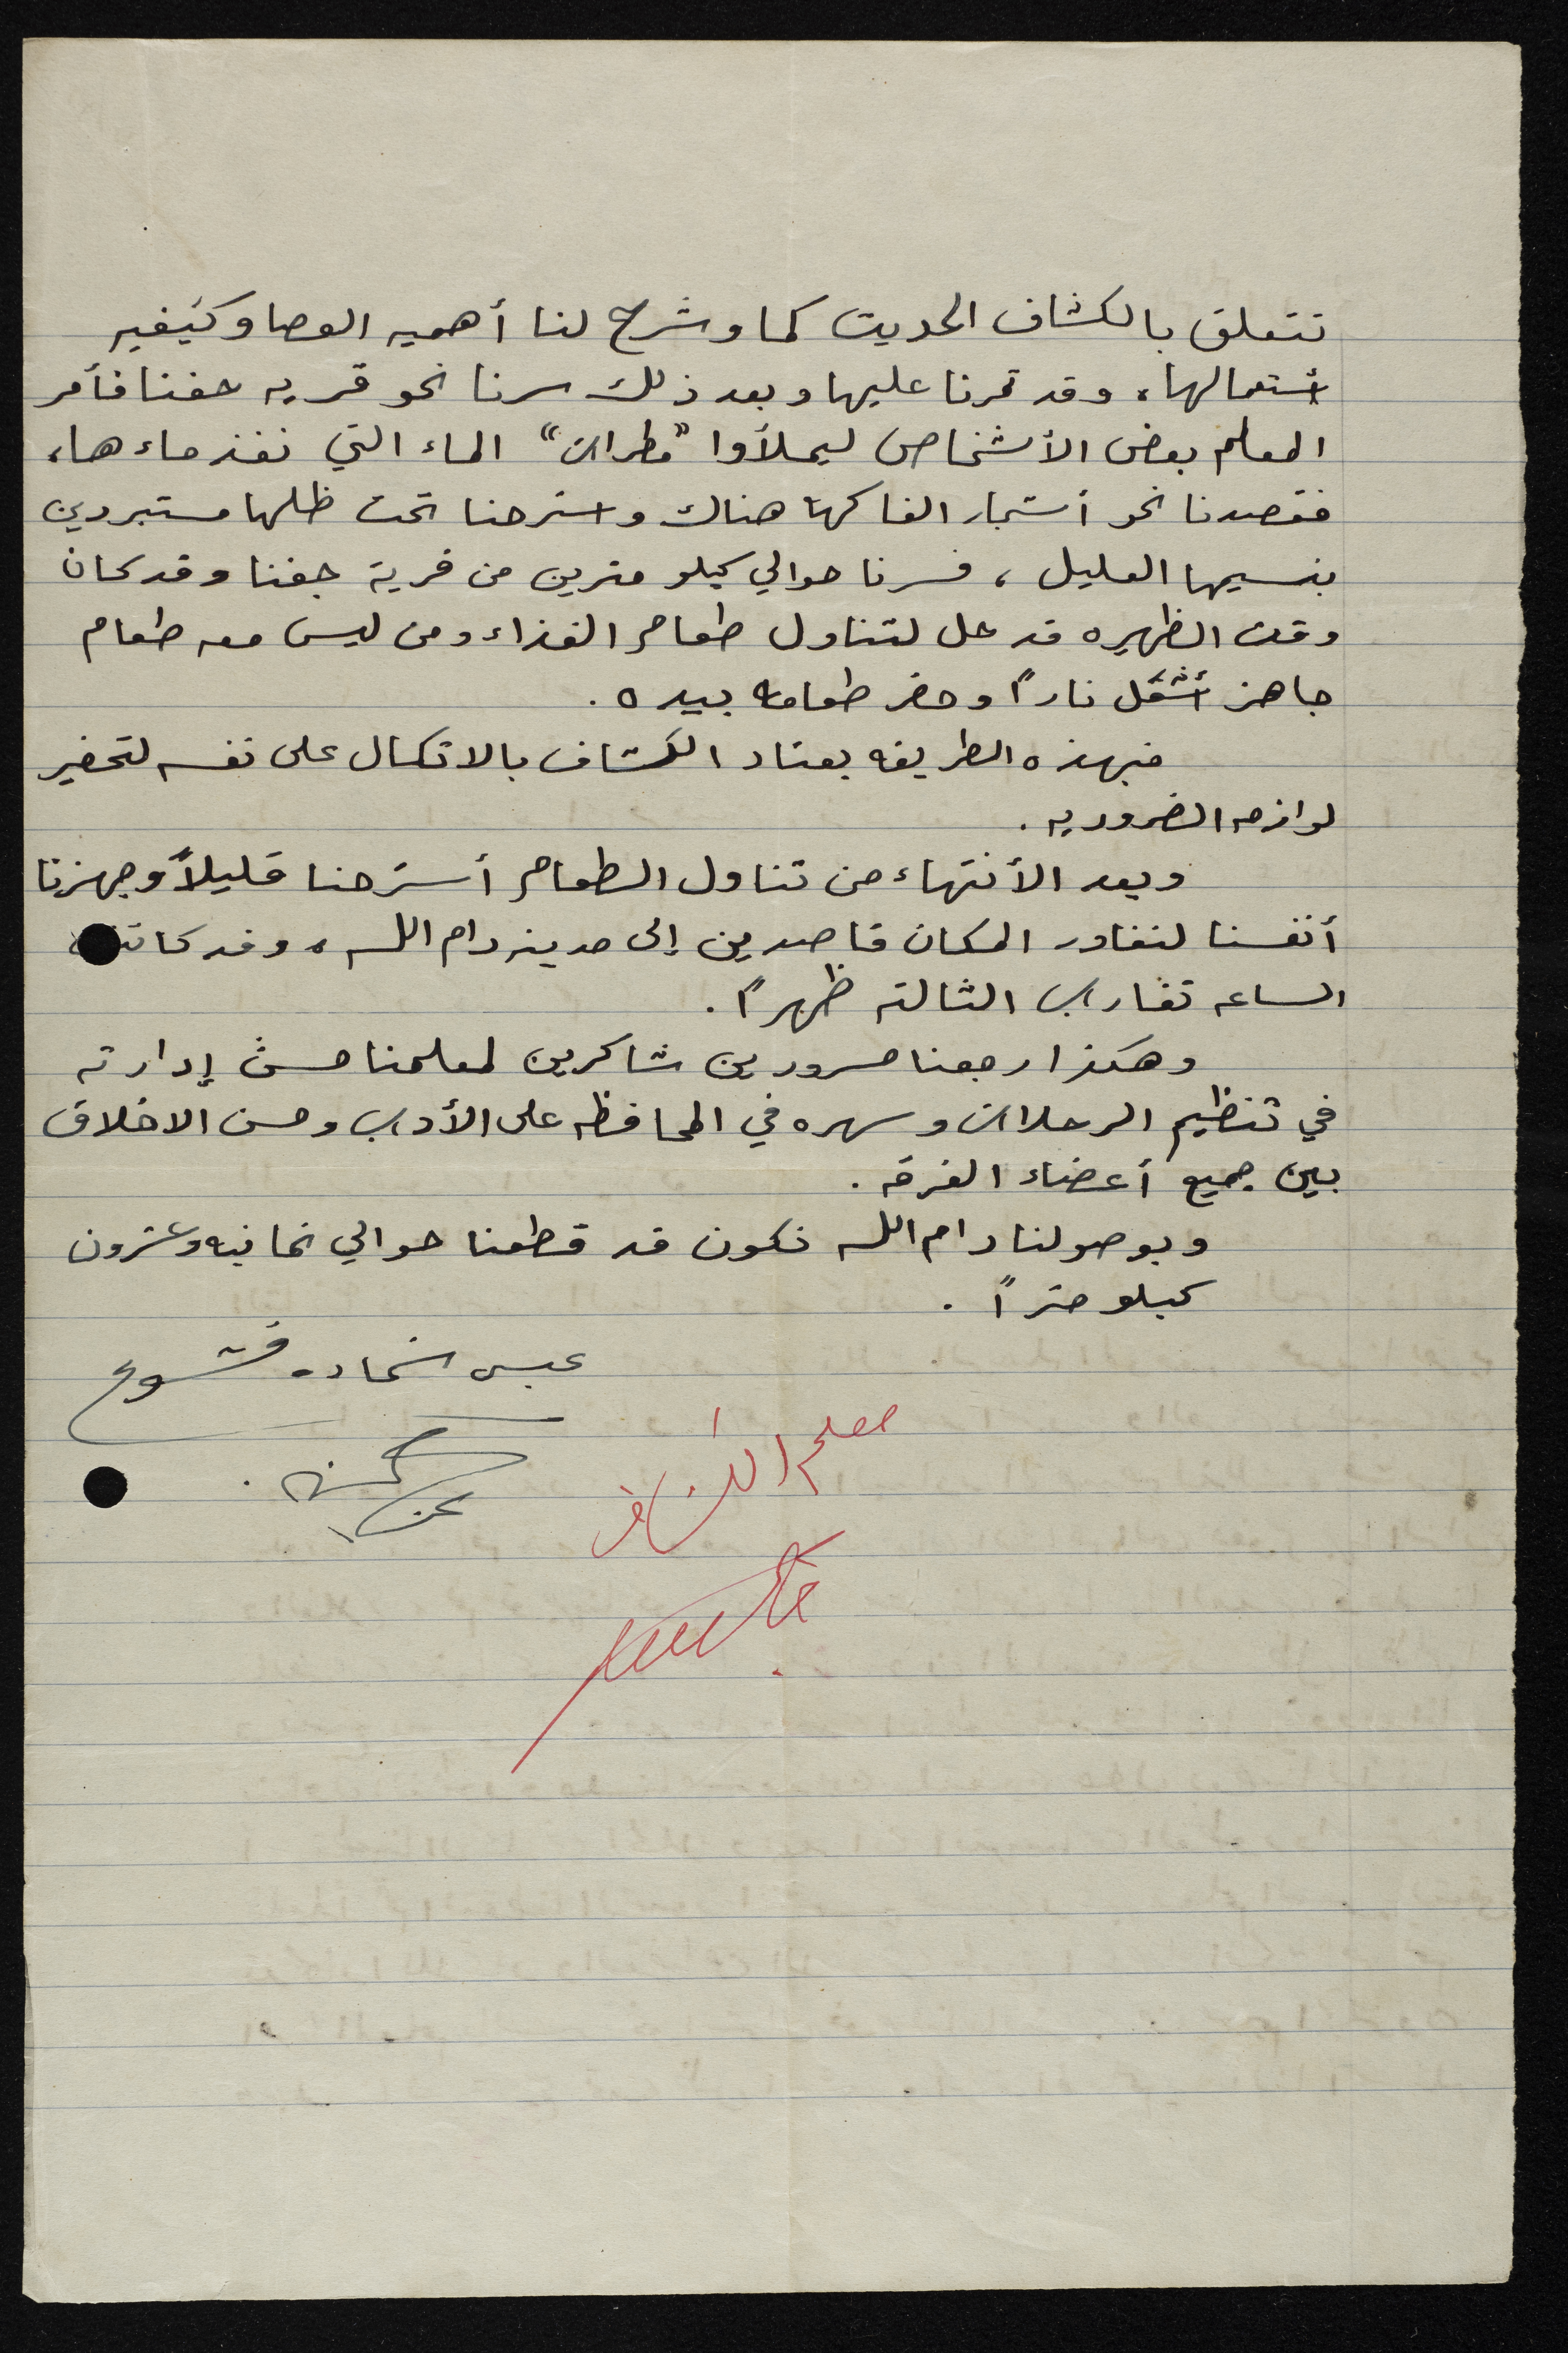 تتعلق بالكشاف الحديث كما وشرح لنا أهميه العصا وكيفيه
أستعمالها، وقد تمرنا عليها وبعد ذلك سرنا نحو قريه جفنا فأمر
المعلم بعض الأشخاص ليملأوا "مطرات" الماء التي نفذ ماءها،
فقصدنا نحو أشجار الفاكهة هناك واسترحنا تحت ظلها مستبردين
بنسيمها العليل، فسرنا حوالي كيلو مترين من قرية جفنا وقد كان
وقت الظهيره قد حل لتناول طعام الغذاء ومن ليس معه طعام
جاهز أشعل ناراً وحضر طعامه بيده.
فبهذه الطريقه يعتاد الكشاف بالاتكال على نفسه لتحضير
لوازمه الضروريه.
وبعد الأنتهاء من تناول الطعام أسترحنا قليلاً وجهزنا
أنفسنا لنغادر المكان قاصدين إلى مدينه رام الله، وقد كانت
الساعه تقارب الثالثه ظهراً.
وهكذا رجعنا مسرورين شاكرين لمعلمنا حسن إدارته
في تنظيم الرحلات وسهره في المحافظه على الأدب وحسن الاخلاق
بين جميع أعضاء الفرقه.
وبوصولنا رام الله نكون قد قطعنا حوالي ثمانيه وعشرون
كيلو متراً.
عيسى شحاده قشوع
معلم الكشاف